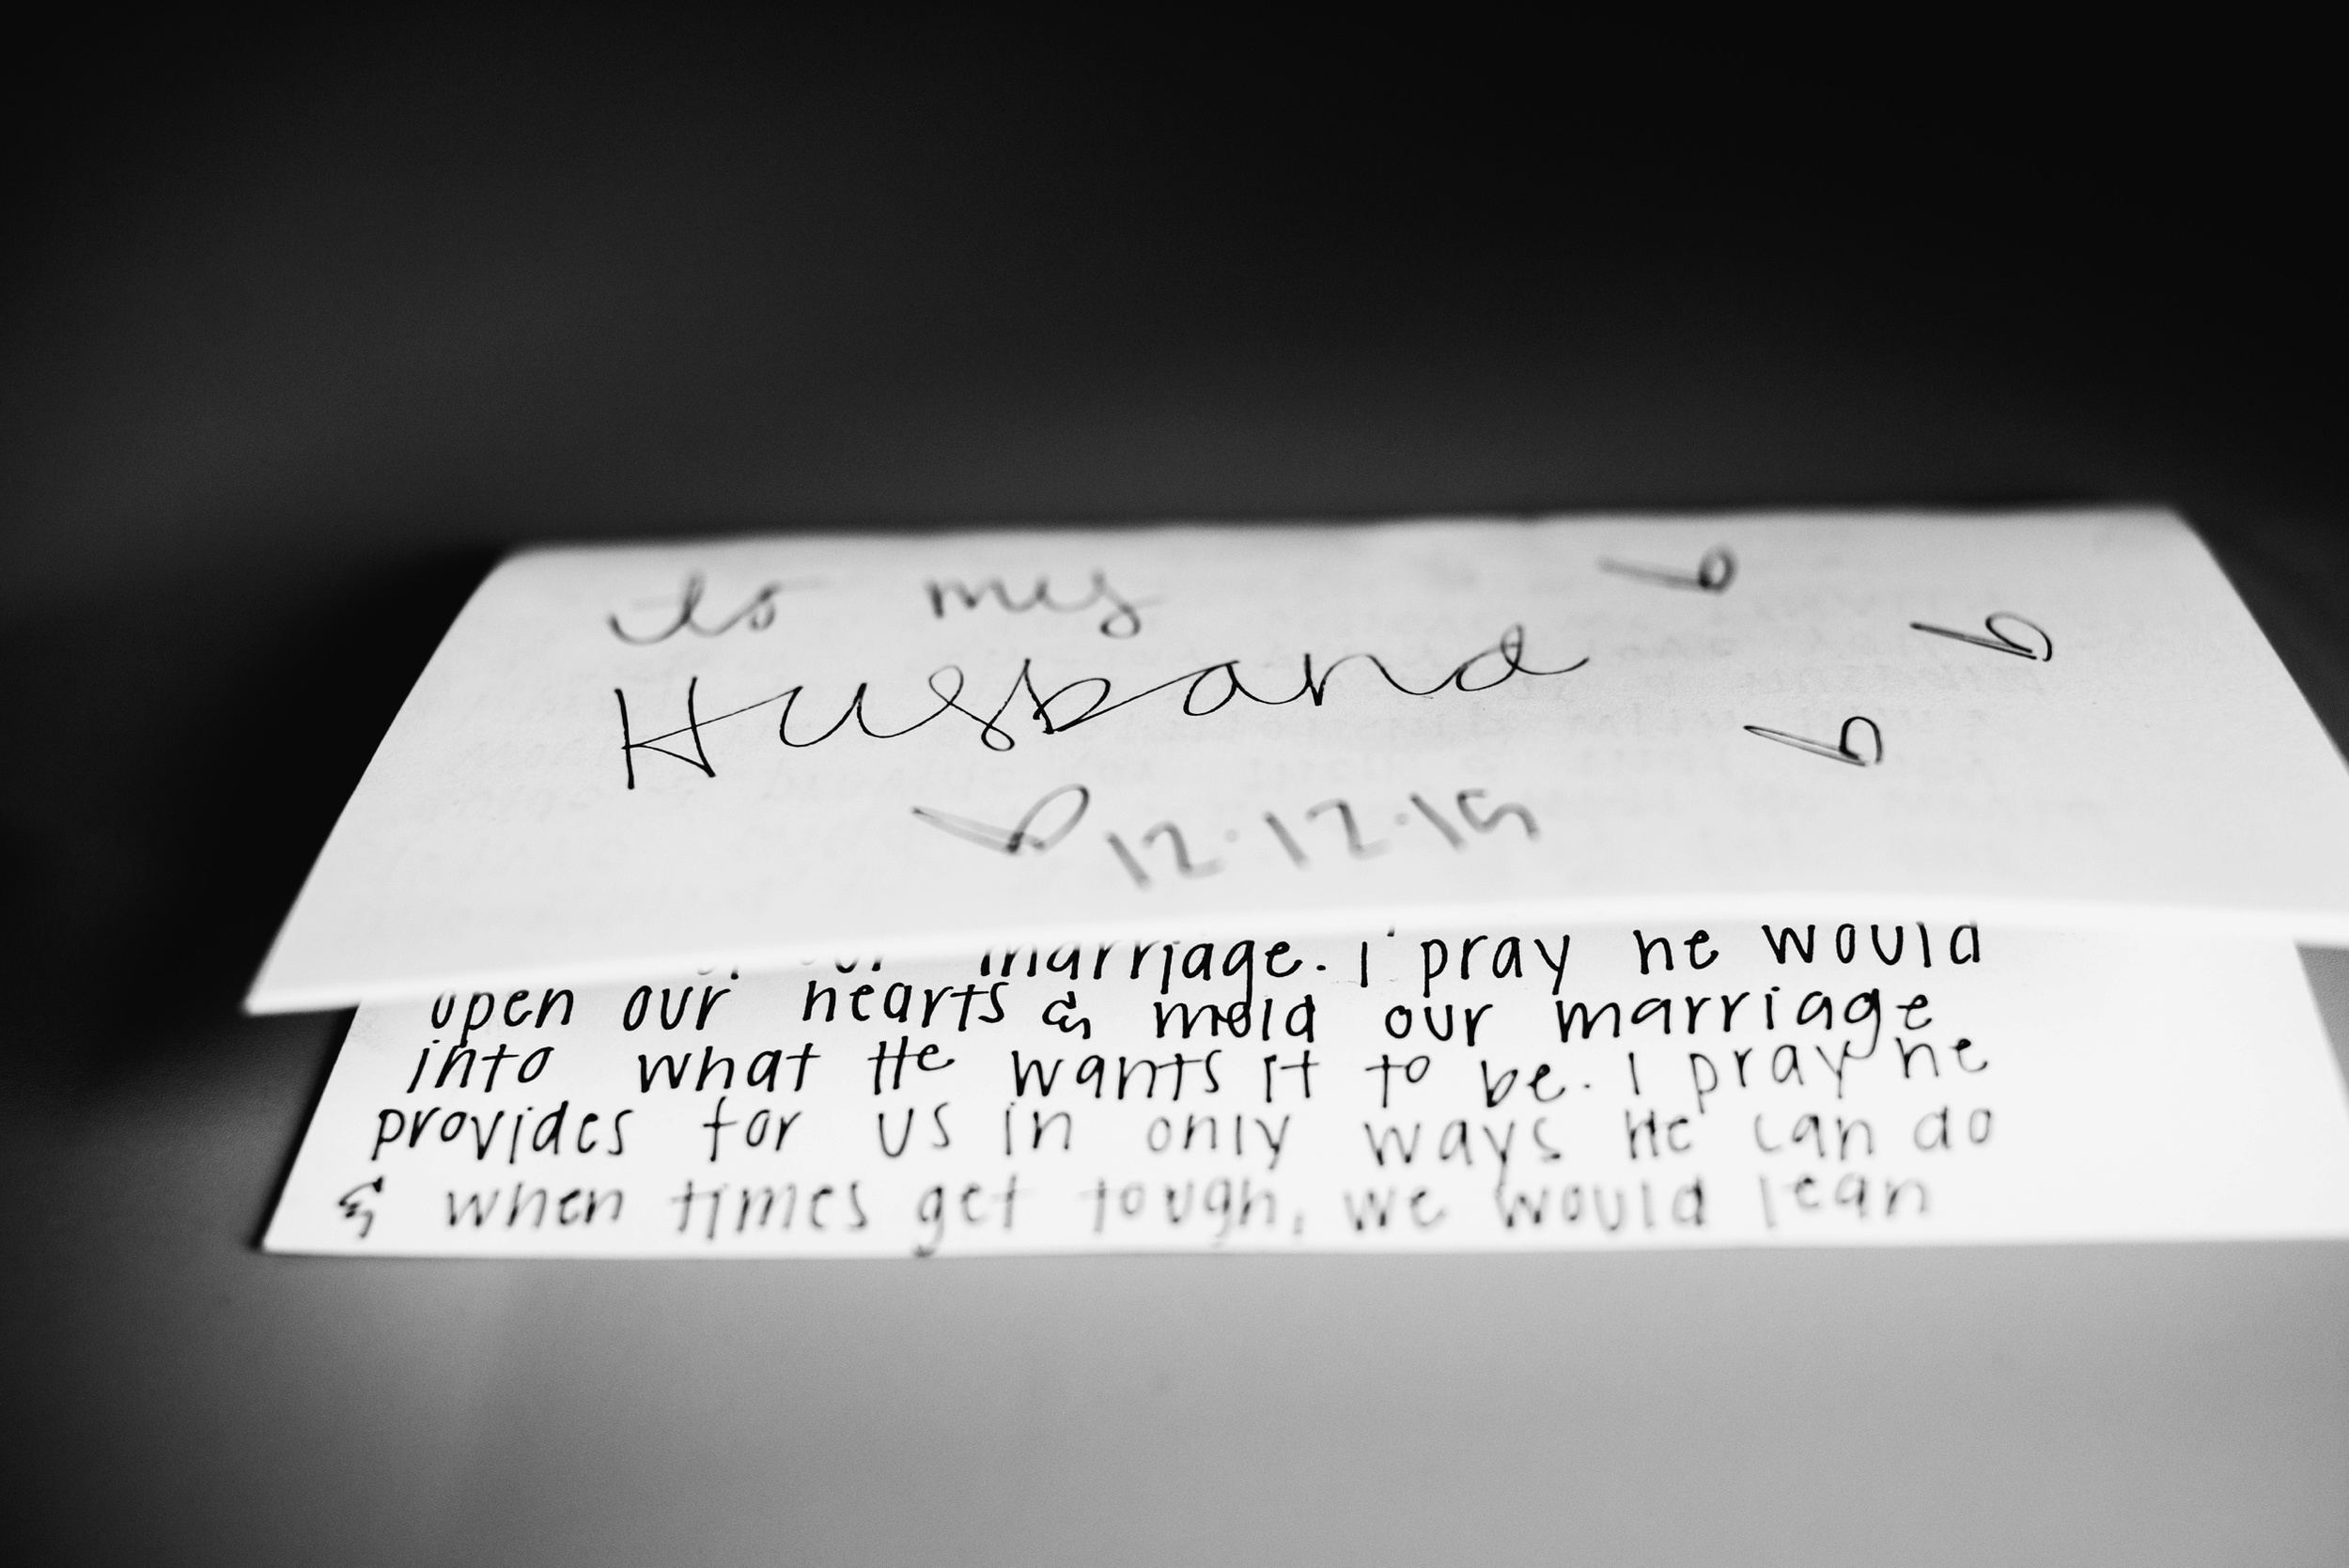 to my
Husband
12.12.15
marriage. I pray he would
open our hearts & mold our marriage
into what He wants it to be. I pray he
provides for us in only ways He can do
& when times get tough, we would lean